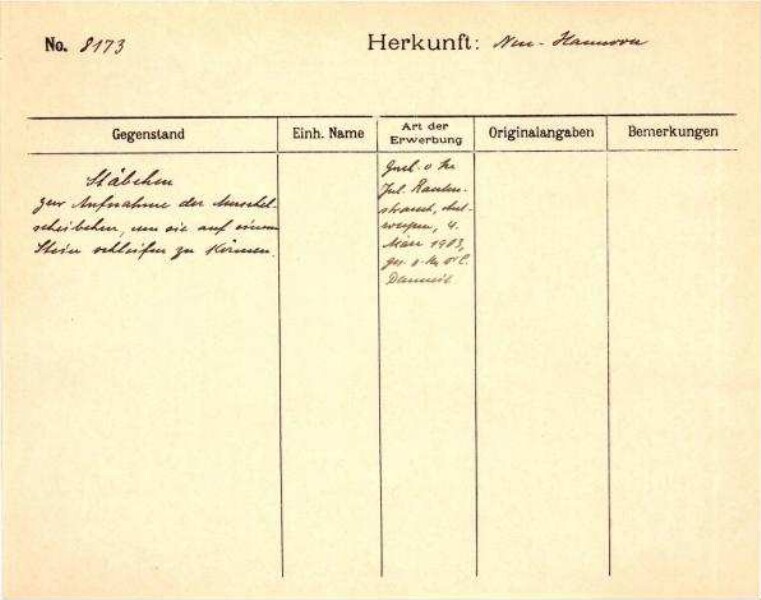 No. 8173
Herkunft: Neu-Hannover
Gegenstand
Einh. Name
Art der
Erwerbung
Originalangaben
Bemerkungen
Stäbchen
zur Aufnahme der Muschel-
scheibchen, um sie auf einem
Stein schleifen zu können.
Jul. Rauten-
strauch, Ant-
werpen, 4.
März 1903,
ges. v.